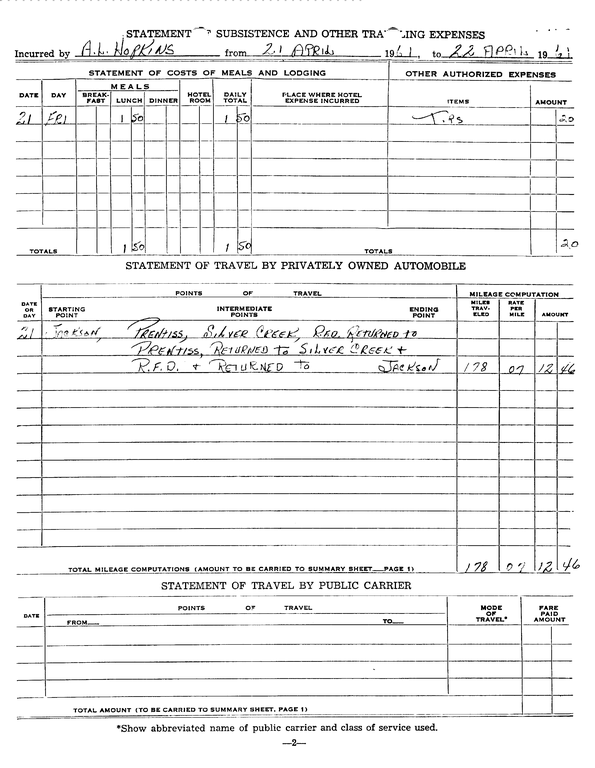 STATEMENT SUBSISTENCE AND OTHER TRA ING EXPENSES
Incurred by A.L. HOPKINS from 21 APRIL 1961, to 22 APRIL 1961
STATEMENT OF COSTS OF MEALS AND LODGING OTHER AUTHORIZED EXPENSES
DATE DAY MEALS BREAK-FAST LUNCH DINNER HOTEL ROOM DAILY TOTAL PLACE WHERE HOTEL EXPENSE INCURRED ITEMS AMOUNT
21 FRI 1 50 1 50 Tips 20
TOTALS 1 50 1 50 TOTALS 20
STATEMENT OF TRAVEL BY PRIVATELY OWNED AUTOMOBILE
POINTS OF TRAVEL MILEAGE COMPUTATION
DATE OR DAY STARTING POINT INTERMEDIATE POINTS ENDING POINT MILES TRAV-ELED RATE PER MILE AMOUNT
21 JACKSON, PRENTISS, SILVER CREEK, R.F.D. RETURNED to
PRENTISS, RETURNED to SILVER CREEK +
R.F.D. + RETURNED to JACKSON 178 07 12 46
TOTAL MILEAGE COMPUTATIONS (AMOUNT TO BE CARRIED TO SUMMARY SHEET PAGE 1) 178 07 12 46
STATEMENT OF TRAVEL BY PUBLIC CARRIER
DATE POINTS OF TRAVEL MODE OF TRAVEL* FARE PAID AMOUNT
FROM TO
TOTAL AMOUNT (TO BE CARRIED TO SUMMARY SHEET, PAGE 1)
*Show abbreviated name of public carrier and class of service used.
—2—